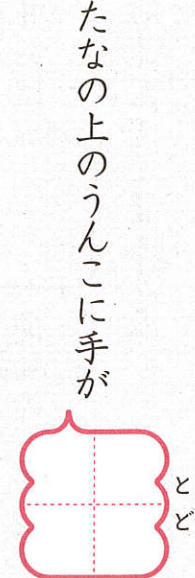 たなの上のうんこに手が
とど